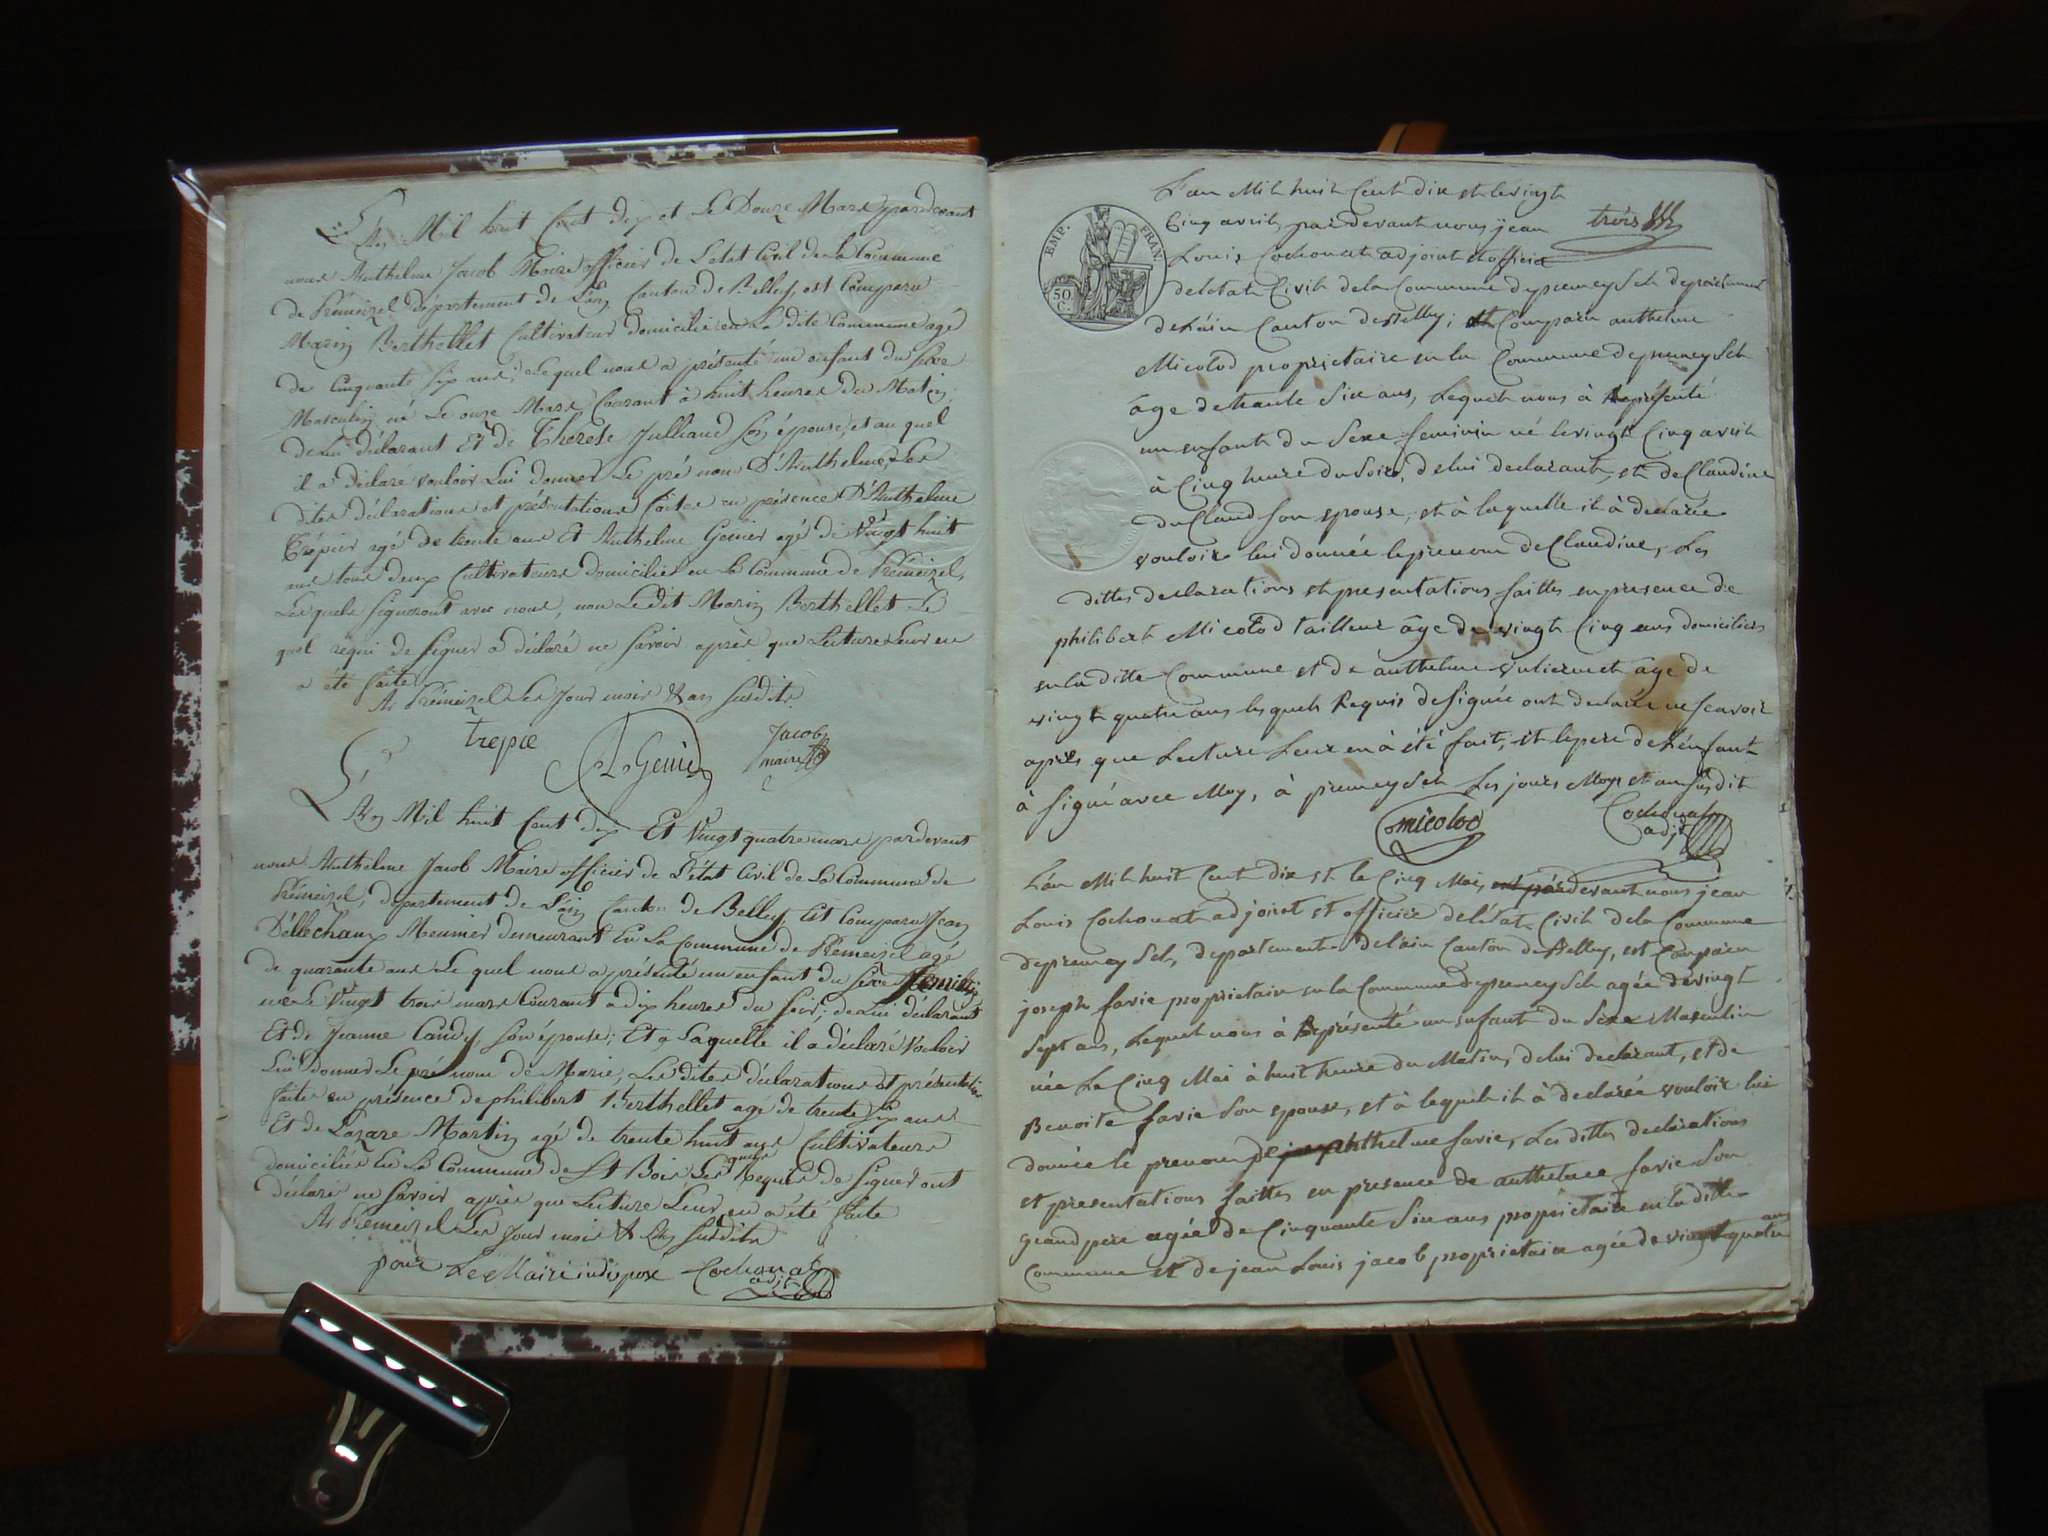 L'An Mil huit Cent dix et Le Douze Mars pardevant
nous Anthelme Jacob Maire officier de L'etat Civil de la Commune
de Prémeizel département de L'ain Canton de Belley, est Comparu
Marin Berthellet Cultivateur domicilié en La dite Commune agé
de Cinquante Six ans, Lequel nous a présenté un enfant du Sexe
Masculin né Le onze Mars Courant à huit heures du Matin,
de lui déclarant Et de Thérèse Julliand Son épouse, et au quel
il a déclaré vouloir Lui donner Le pré nom D'Anthelme, Les
dites déclarations et présentations faites en présence D'Anthelme
Trépier agé de trente ans Et Anthelme Genier agé de Vingt huit
ans tous deux Cultivateurs domiciliés en la Commune de Prémeizel,
Lesquels Signeront avec nous, non Le dit Marin Berthellet Le
quel requi de Signer a déclaré ne Savoir après que Lecture Leur en
a été faite.
A Prémeizel Les Jour mois & an Susdits
trepie A Genier Jacob
maire
L'An Mil huit Cent dix Et Vingt quatre mars pardevant
nous Anthelme Jacob Maire officier de L'état Civil de La Commune de
Prémeizel, departement de L'ain Canton de Belley, Est Comparu Jean
Dellechaux Meunier demeurant En La Commune de Prémeizel agé
de quarante ans Le quel nous a présenté un enfant du Sexe feminin
née Le Vingt trois mars Courant a dix heures du Soir; de Lui déclarant
Et de Jeanne Candy Son épouse; Et a Laquelle il a déclaré Vouloir
Lui donner Le pré nom de Marie, Les dites déclarations et présentations
faites en présence de philibert Berthellet agé de trente Six ans
Et de Lazare Martin agé de trente huit ans Cultivateurs
domiciliés En La Commune de St Bois Lesquels Requis de Signer ont
déclaré ne Savoir après que Lecture Leur en a été faite
A Prémeizel Les Jour mois & An Susdits
pour Le Maire indispose Cochonat
adjt
L'an Mil huit Cent dix et le vingt
Cinq avril, par devant nous jean trois
Louis Cochonat adjoint et officier
EMP. FRAN.
50. C.
de l'etat Civil de la Commune de premeysel departement
de l'ain Canton de Belley; est Comparu anthelme
Micolod proprietaire en la Commune de premeysel
âge de trante Six ans, Lequel nous à Représenté
un enfant du Sexe feminin né le vingt Cinq avril
à Cinq heure du Soire, de lui declarant, et de Claudine
du Claud Son epouse, et à laquelle il à declarée
vouloire lui donnée le prenom de Claudine, Les
dittes declarations et presentations faittes en presence de
philibert Micolod tailleur âge de vingt Cinq ans domiciliés
en la ditte Commune et de anthelme âge de
vingt quatre ans lesquels Requis de Signée ont declarée ne Scavoir
apres que Lecture Leur en à été fait, et le pere de l'enfant
à Signé avec Moy, à premeysel Les jours Moys et an Susdit
micolod Cochonat
adjt
L'an Mil huit Cent dix et le Cinq Mai, par devant nous jean
Louis Cochonat adjoint et officier de l'état Civil de la Commune
de premeysel, departement de l'ain Canton de Belley, est Comparu
joseph favie proprietaire en la Commune de premeysel agée de vingt
Sept ans, Lequel nous à Représenté un enfant du Sexe Masculin
née Le Cinq Mai à huit heure du Matin, de lui declarant, et de
Benoite favie Son epouse, et à lequel il à declarée vouloir lui
donnée le prenom de anthelme favie, Les dittes declarations
et presentations faittes en presence de anthelme favie Son
grand pere agée de Cinquante Six ans proprietaire en la ditte
Commune et de jean Louis jacob proprietaire agée de vingt quatre ans